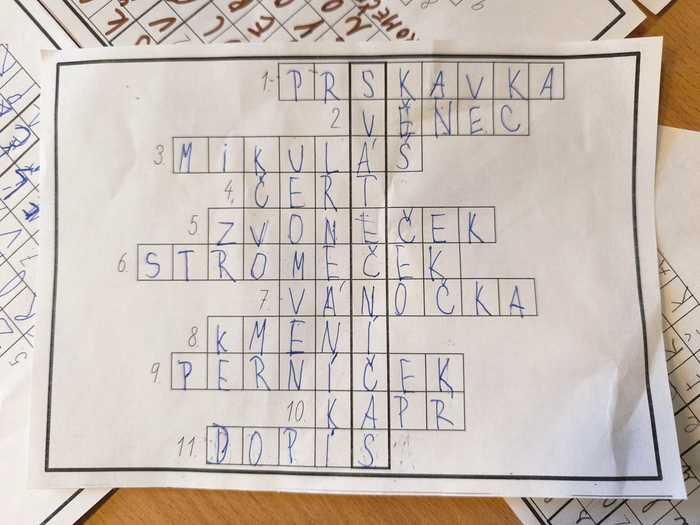 1. PRSKAVKA
2 VĚNEC
3. MIKULÁŠ
4. ČERT
5. ZVONEČEK
6. STROMEČEK
7. VÁNOČKA
8. KMENÍ
9. PERNÍČEK
10. KAPR
11. DOPIS